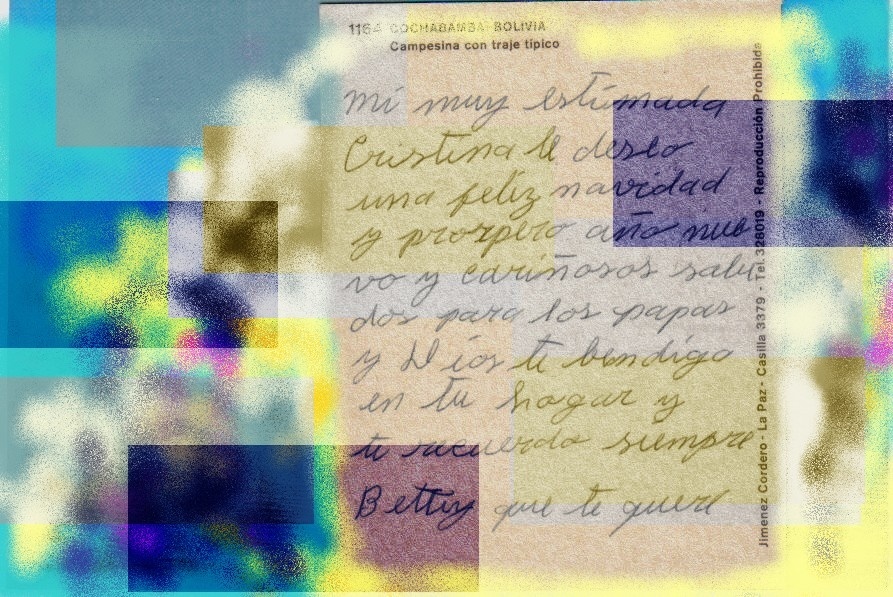 1164 COCHABAMBA - BOLIVIA
Campesina con traje típico
Mi muy estimada
Cristina le deseo
una feliz navidad
y prospero año nue
vo y cariñosos salu
dos para los papas
y Dios te bendiga
en tu hogar y
te recuerda siempre
Bettiy que te quere
Jimenez Cordero - La Paz - Casilla 3379 - Tel. 328019 - Reproducción Prohibida